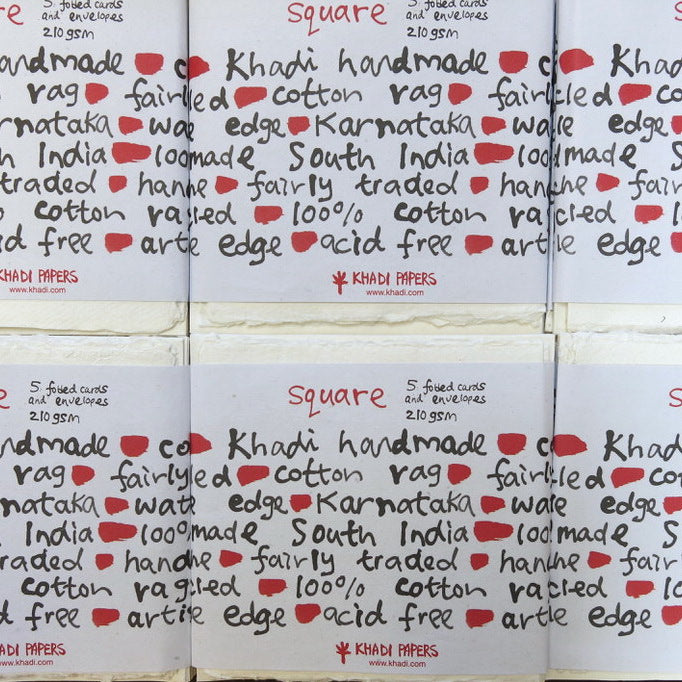 re
5 folded cards
and envelopes
210gsm
andmade c
rag fairly
rnataka wa
h India 100
traded han
cotton ra
id free arti
KHADI PAPERS
www.khadi.com
square
5 folded cards
and envelopes
210gsm
Khadi handmade c
led cotton rag fairly
edge Karnataka wa
made South India 100
ne fairly traded han
cled 100% cotton ra
e edge acid free art
KHADI PAPERS
www.khadi.com
s
Khad
cled co
le edge
made S
ne fair
cled 10
le edge
e
5 folded cards
and envelopes
210gsm
ndmade co
rag fairly
nataka wate
India 100%
raded hand
cotton rag
d free arti
ADI PAPERS
www.khadi.com
square
5 folded cards
and envelopes
210gsm
Khadi handmade c
led cotton rag fairly
edge Karnataka wa
made South India 100
ne fairly traded han
cled 100% cotton ra
e edge acid free art
KHADI PAPERS
www.khadi.com
s
Khad
cled co
e edge
made S
ne fair
cled 10
e edge